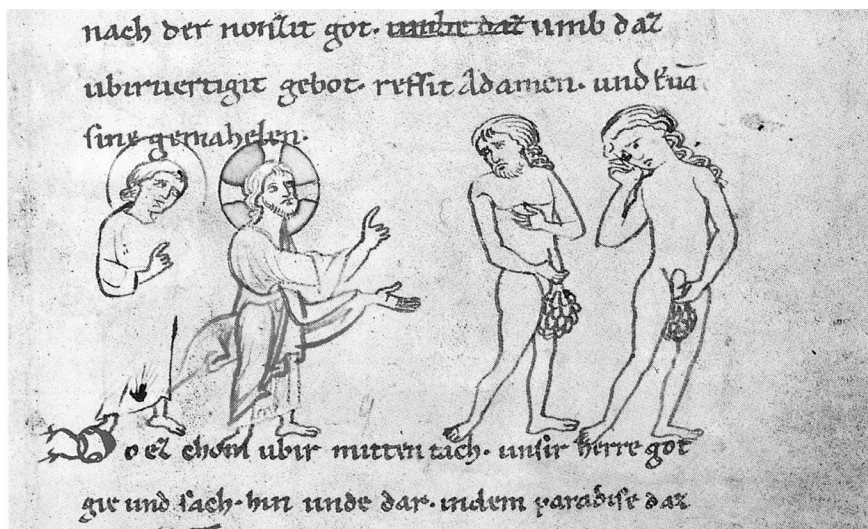 nach der nonzit got. umbe daz umb daz
ubirvertigit gebot. reffit Adamen. und Euā
sine gemahelen.
Do ez chom ubir mitten tach. unsir herre got
gie und sach. hin unde dar. indem paradise daz